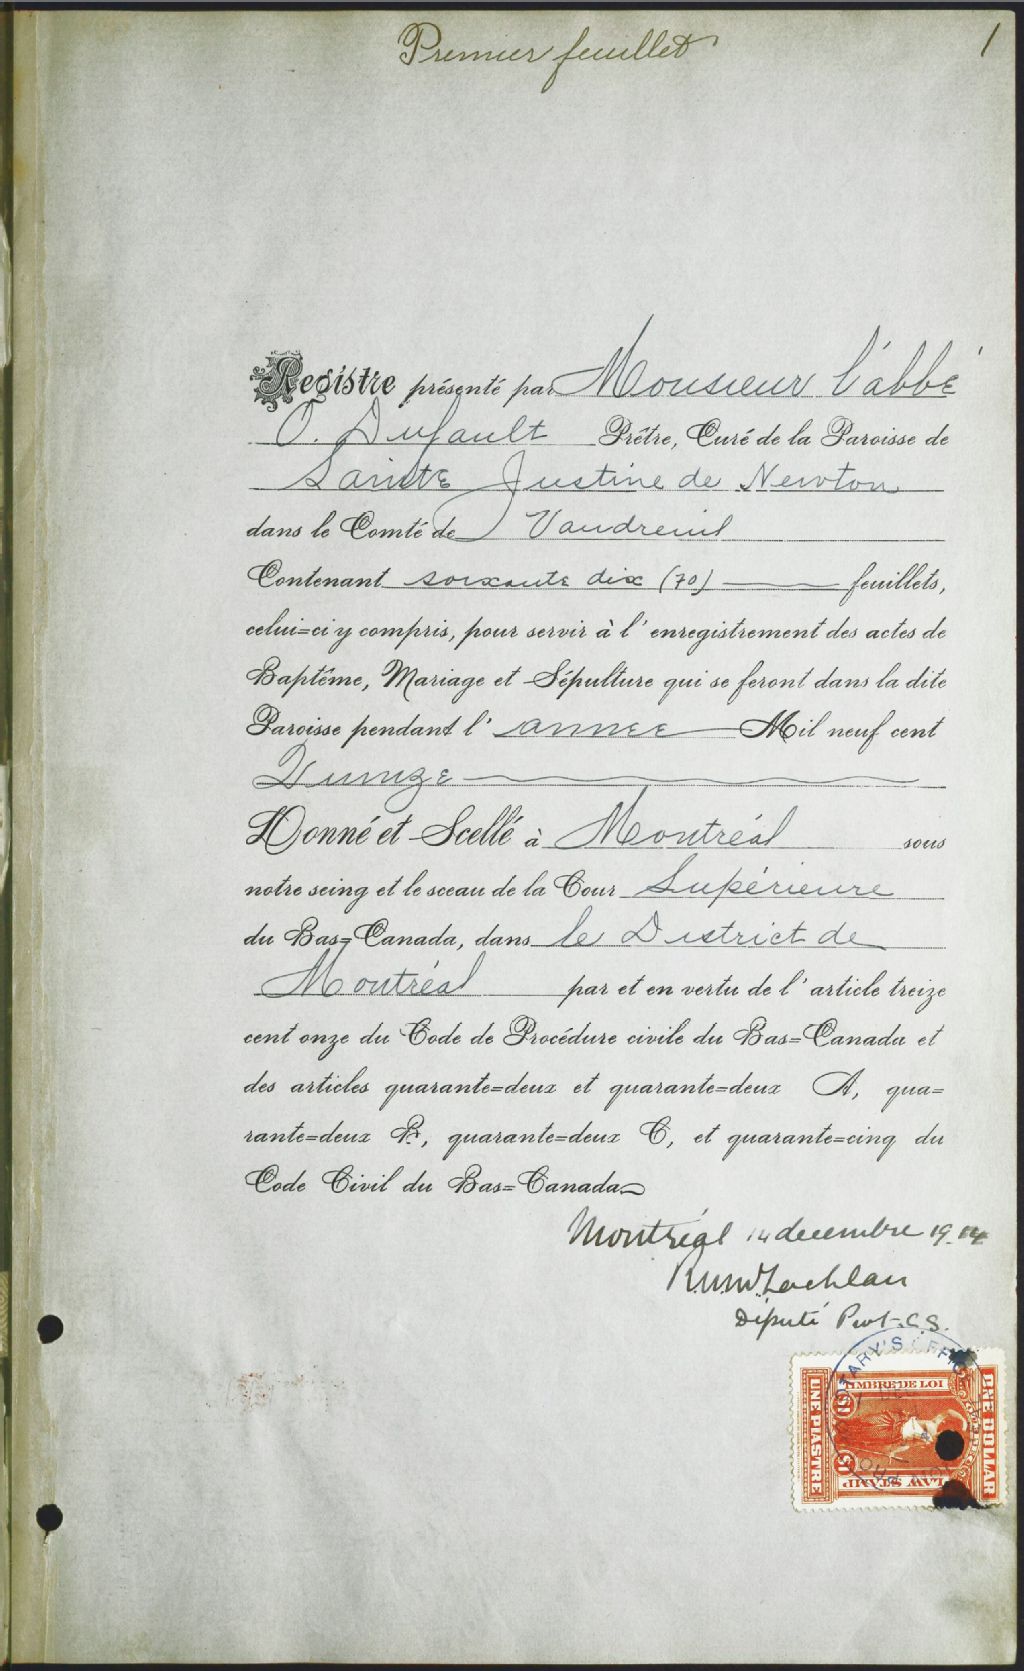 Premier feuillet
1
Registre présenté par Monsieur l'abbé
O. Dufault Prêtre, Curé de la Paroisse de
Sainte Justine de Newton
dans le Comté de Vaudreuil
Contenant soixante dix (70) feuillets,
celui=ci y compris, pour servir à l'enregistrement des actes de
Baptême, Mariage et Sépulture qui se feront dans la dite
Paroisse pendant l'année Mil neuf cent
Quinze
Donné et Scellé à Montréal sous
notre seing et le sceau de la Cour Supérieure
du Bas=Canada, dans le District de
Montréal par et en vertu de l'article treize
cent onze du Code de Procédure civile du Bas=Canada et
des articles quarante=deux et quarante=deux A, qua=
rante=deux B, quarante=deux C, et quarante=cinq du
Code Civil du Bas=Canada
Montréal 14 decembre 1914
Lachlan
Député Prot. C.S.
TIMBRE DE LOI
UNE PIASTRE
ONE DOLLAR
$1 $1
LAW STAMP